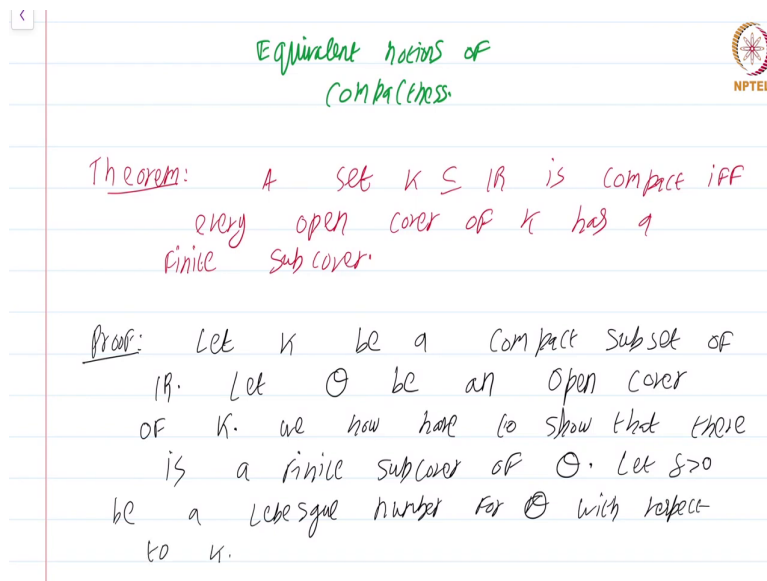 Equivalent notions of
compactness.
NPTEL
Theorem: A set K ⊆ IR is compact iff
every open cover of K has a
finite subcover.
Proof: Let K be a compact subset of
IR. Let Θ be an open cover
of K. we now have to show that there
is a finite subcover of Θ. Let δ>0
be a Lebesgue number for Θ with respect
to K.